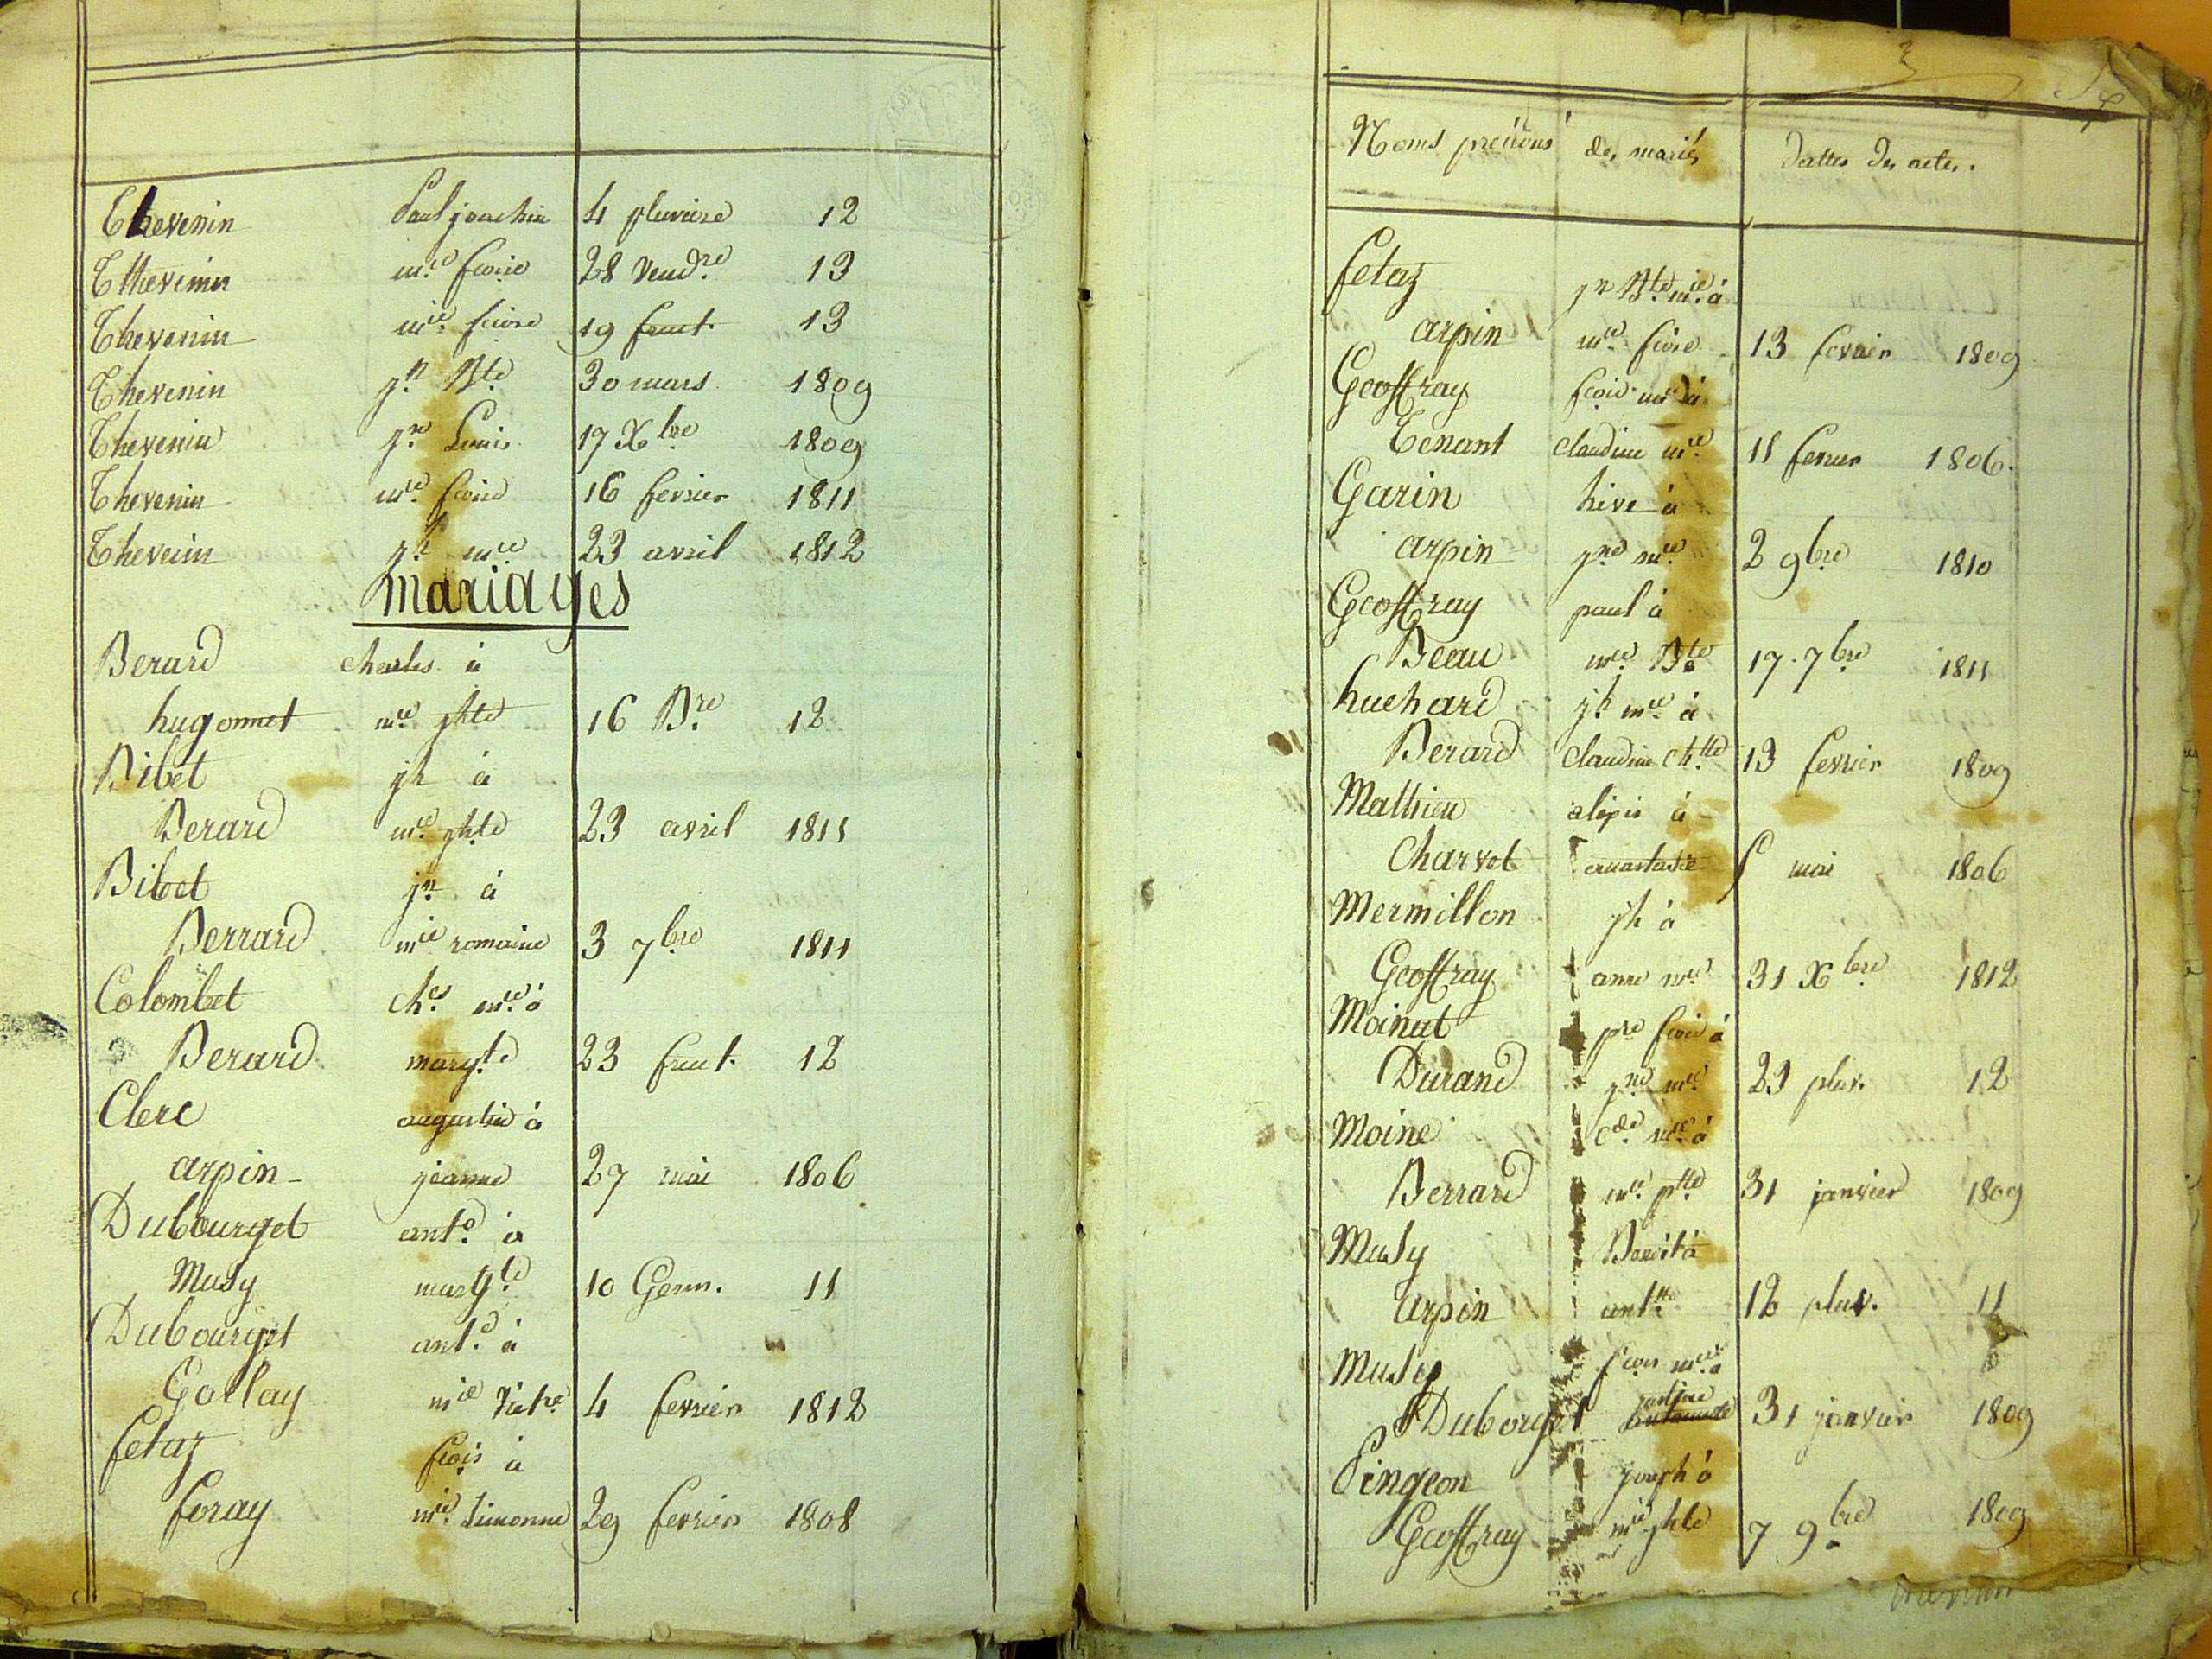 Thevenin Paul joachin 4 pluviose 12
Tthevenin m.ie fçoise 28 Vend.re 13
Thevenin m.ie fçoise 19 fruct. 13
Thevenin j.n B.te 30 mars 1809
Thevenin j.n Louis 17 X.bre 1809
Thevenin m.ie fçoise 16 fevrier 1811
Thevenin j.h m.ie 23 avril 1812
mariages
Berard charles à
hugonnet m.ie jhte 16 B.re 12
Bibet jh à
Berard m.ie jhte 23 avril 1811
Bibet j.n à
Berrard m.ie romaine 3 7.bre 1811
Colombet ch.es m.ie à
Berard marg.te 23 fruct. 12
Clerc augustin à
arpin jeanne 27 mai 1806
Dubourget ant.e à
Musy marg.te 10 Germ. 11
Dubourget ant.e à
Gallay m.ie 4 fevrier 1812
fetaz fçois à
foray m.ie Simonne 29 fevrier 1808
3
Noms prénoms des mariés dattes des actes.
fetaz j.n B.te m.ie à
arpin m.ie fçoise 13 fevrier 1809
Geoffray fçois m.ie à
Tenant claudine m.ie 11 fevrier 1806.
Garin hive à
arpin j.ne m.ie 2 9.bre 1810
Geoffray paul à
Beau m.ie B.te 17. 7.bre 1811
huchard j.h m.ie à
Berard Claudine Ch.tte 13 fevrier 1809
Mathieu alexis à
Charvet anastasie mai 1806
Mermillon jh à
Geoffray anne m.ie 31 X.bre 1812
Moinat p.re fçois à
Durand j.ne m.ie 23 pluv. 12
Moine c.de m.ie à
Berrard m.ie p.tte 31 janvier 1809
Musy Benoit à
arpin ant.tte 12 pluv. 11
Musy fçois m.ie à
Dubourget justine 31 janvier 1809
Pingeon joseph à
Geoffray m.ie jhte 7 9.bre 1809